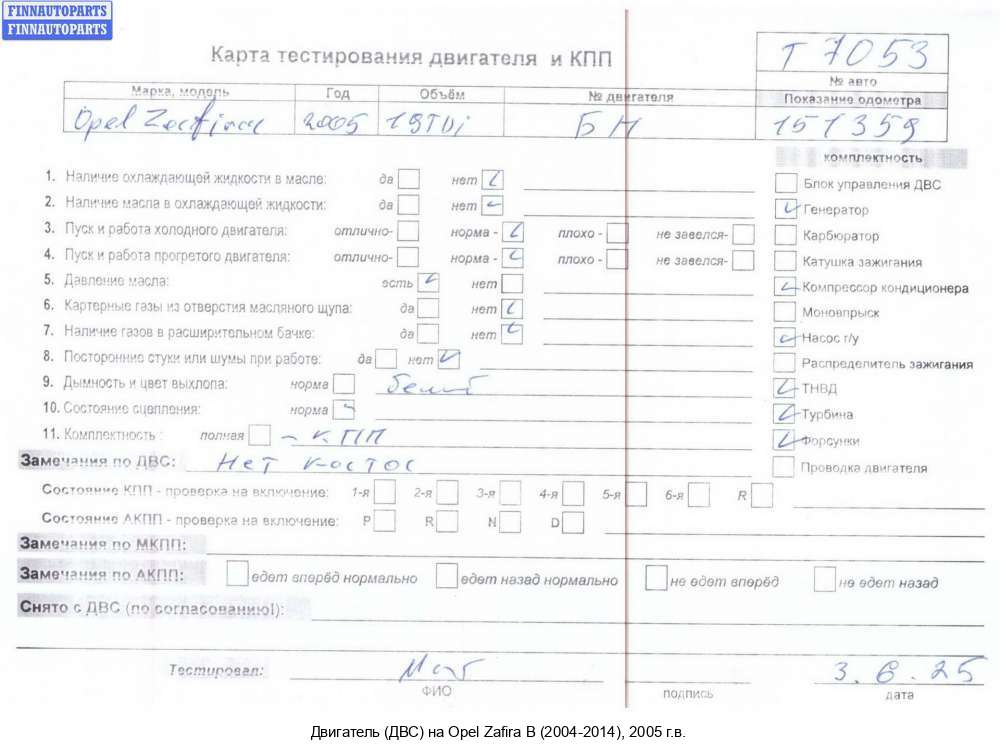 FINNAUTOPARTS
FINNAUTOPARTS
Карта тестирования двигателя и КПП
Т 7053
№ авто
Марка, модель Год Объём № двигателя Показание одометра
Opel Zafira 2005 1.9TDi БН 151359
комплектность
1. Наличие охлаждающей жидкости в масле: да нет
Блок управления ДВС
2. Наличие масла в охлаждающей жидкости: да нет
Генератор
3. Пуск и работа холодного двигателя: отлично- норма - плохо - не завелся-
Карбюратор
4. Пуск и работа прогретого двигателя: отлично- норма - плохо - не завелся-
Катушка зажигания
5. Давление масла: есть нет
Компрессор кондиционера
6. Картерные газы из отверстия масляного щупа: да нет
Моновпрыск
7. Наличие газов в расширительном бачке: да нет
Насос г/у
8. Посторонние стуки или шумы при работе: да нет
Распределитель зажигания
9. Дымность и цвет выхлопа: норма
ТНВД
10. Состояние сцепления: норма
Турбина
11. Комплектность : полная - КПП
Форсунки
Замечания по ДВС: Нет
Проводка двигателя
Состояние КПП - проверка на включение: 1-я 2-я 3-я 4-я 5-я 6-я R
Состояние АКПП - проверка на включение: P R N D
Замечания по МКПП:
Замечания по АКПП: едет вперёд нормально едет назад нормально не едет вперёд не едет назад
Снято с ДВС (по согласованию!):
Тестировал: 3.6.25
ФИО подпись дата
Двигатель (ДВС) на Opel Zafira B (2004-2014), 2005 г.в.